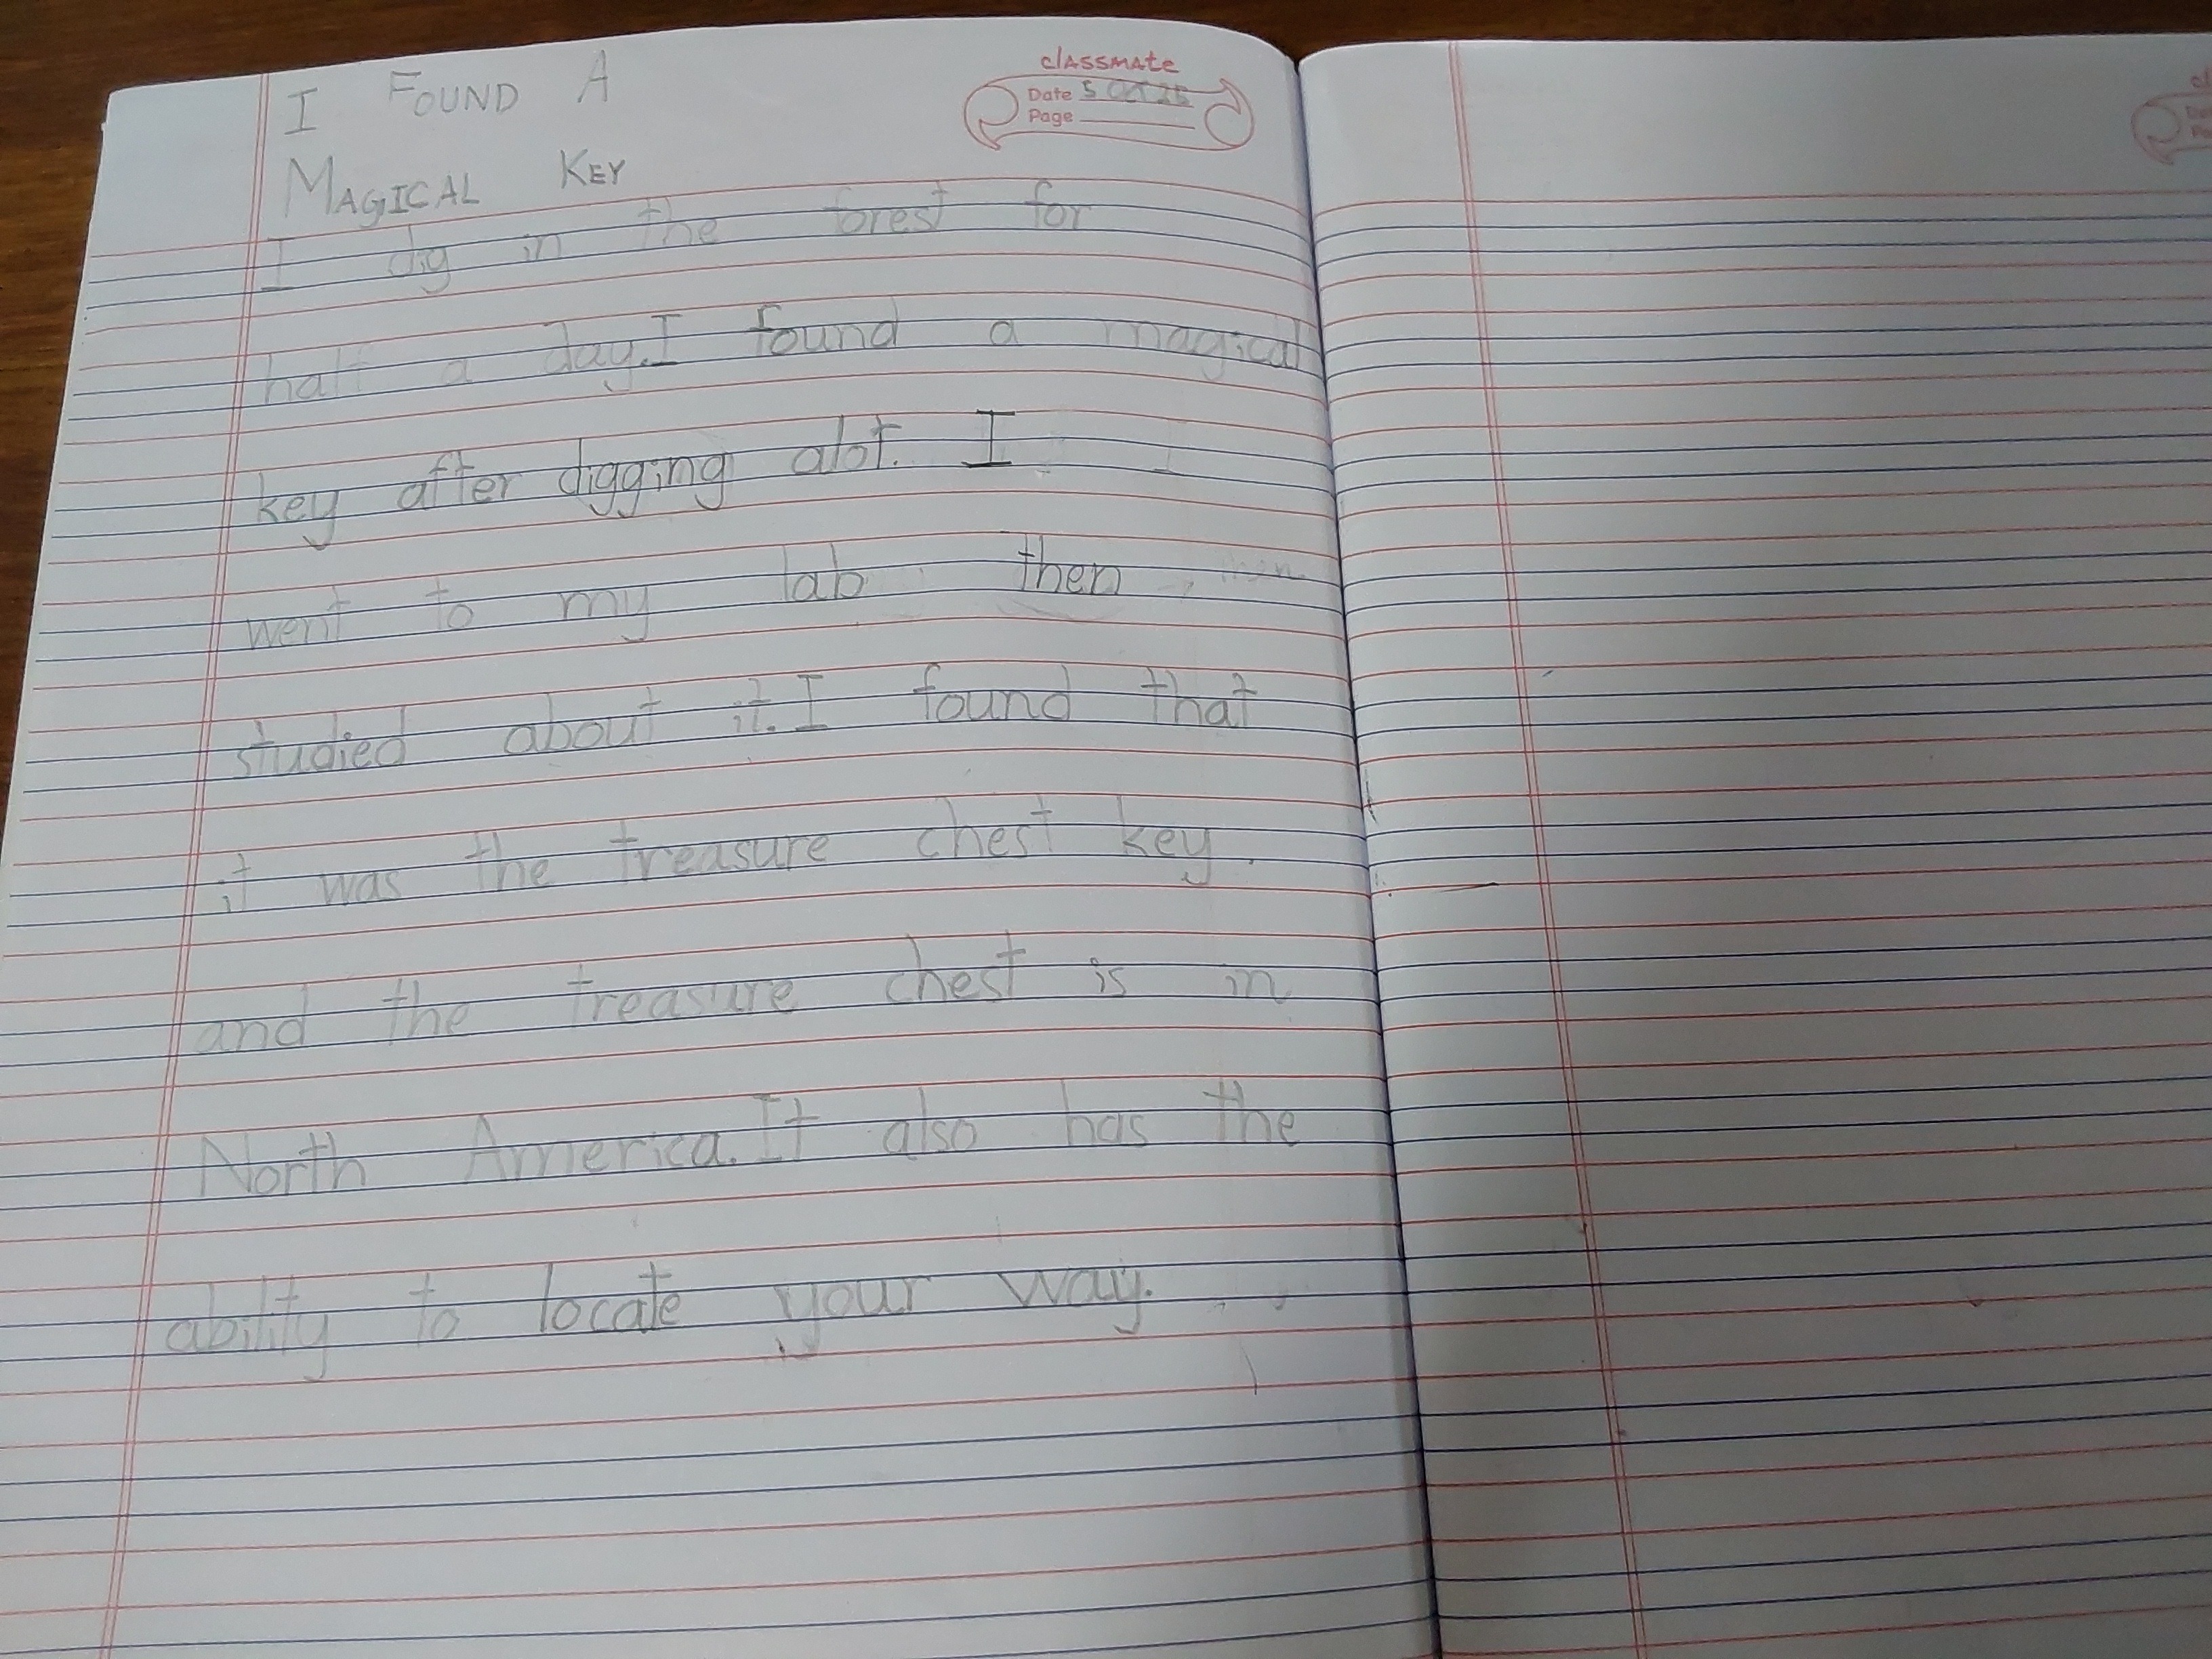 I FOUND A
classmate
Date 5 OCT 25
Page
MAGICAL KEY
I dig in the forest for
half a day.I found a magical
key after digging alot. I
went to my lab then
studied about it.I found that
it was the treasure chest key.
and the treasure chest is in
North America.It also has the
ability to locate your way.